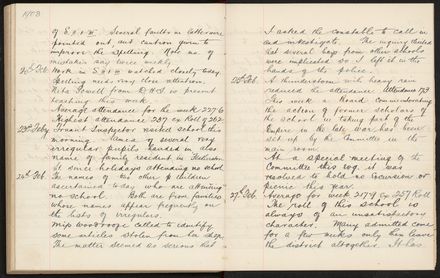 1903
of S & 1 W. Several faults in letter were
pointed out and caution given to
improve the spelling. Note no. of
mistakes say twice weekly.
20th Feb. Work in S & 1 W watched closely today
Spelling needs very close attention.
Rita Powell from is present
teaching this week.
Average attendance for the week 227.6
Highest attendance 237 ex Roll of 262
23rd Feby Truant Inspector visited school this
morning. Names of several very
irregular pupils handed in also
name of family resident in
since holidays attending no school.
24th Feb. The names of two other children
ascertained today who are attending
no school. Both are from families
whose names appear frequently on
the lists of irregulars.
Miss Woodroofe called to identify
some articles stolen from her shop.
The matter seemed so serious that
I asked the constable to call in
and investigate. The inquiry elicited
that several boys from other schools
were implicated so I left it in the
hands of the police.
A thunderstorm with heavy rain
reduced the attendance. Attendance 173
This week a Board commemorating
the action of former scholars of
the school in taking part of the
Empire in the late war has been
set up by the Committee in the
main room.
At a special meeting of the
Committee this eve. it was
resolved to hold no excursion or
picnic this year.
27 Feb. Average for week 217.9 ex 257 Roll
The roll of this school is
always of an unsatisfactory
character. Many admitted come
for a few weeks only then leave
the district altogether. It has